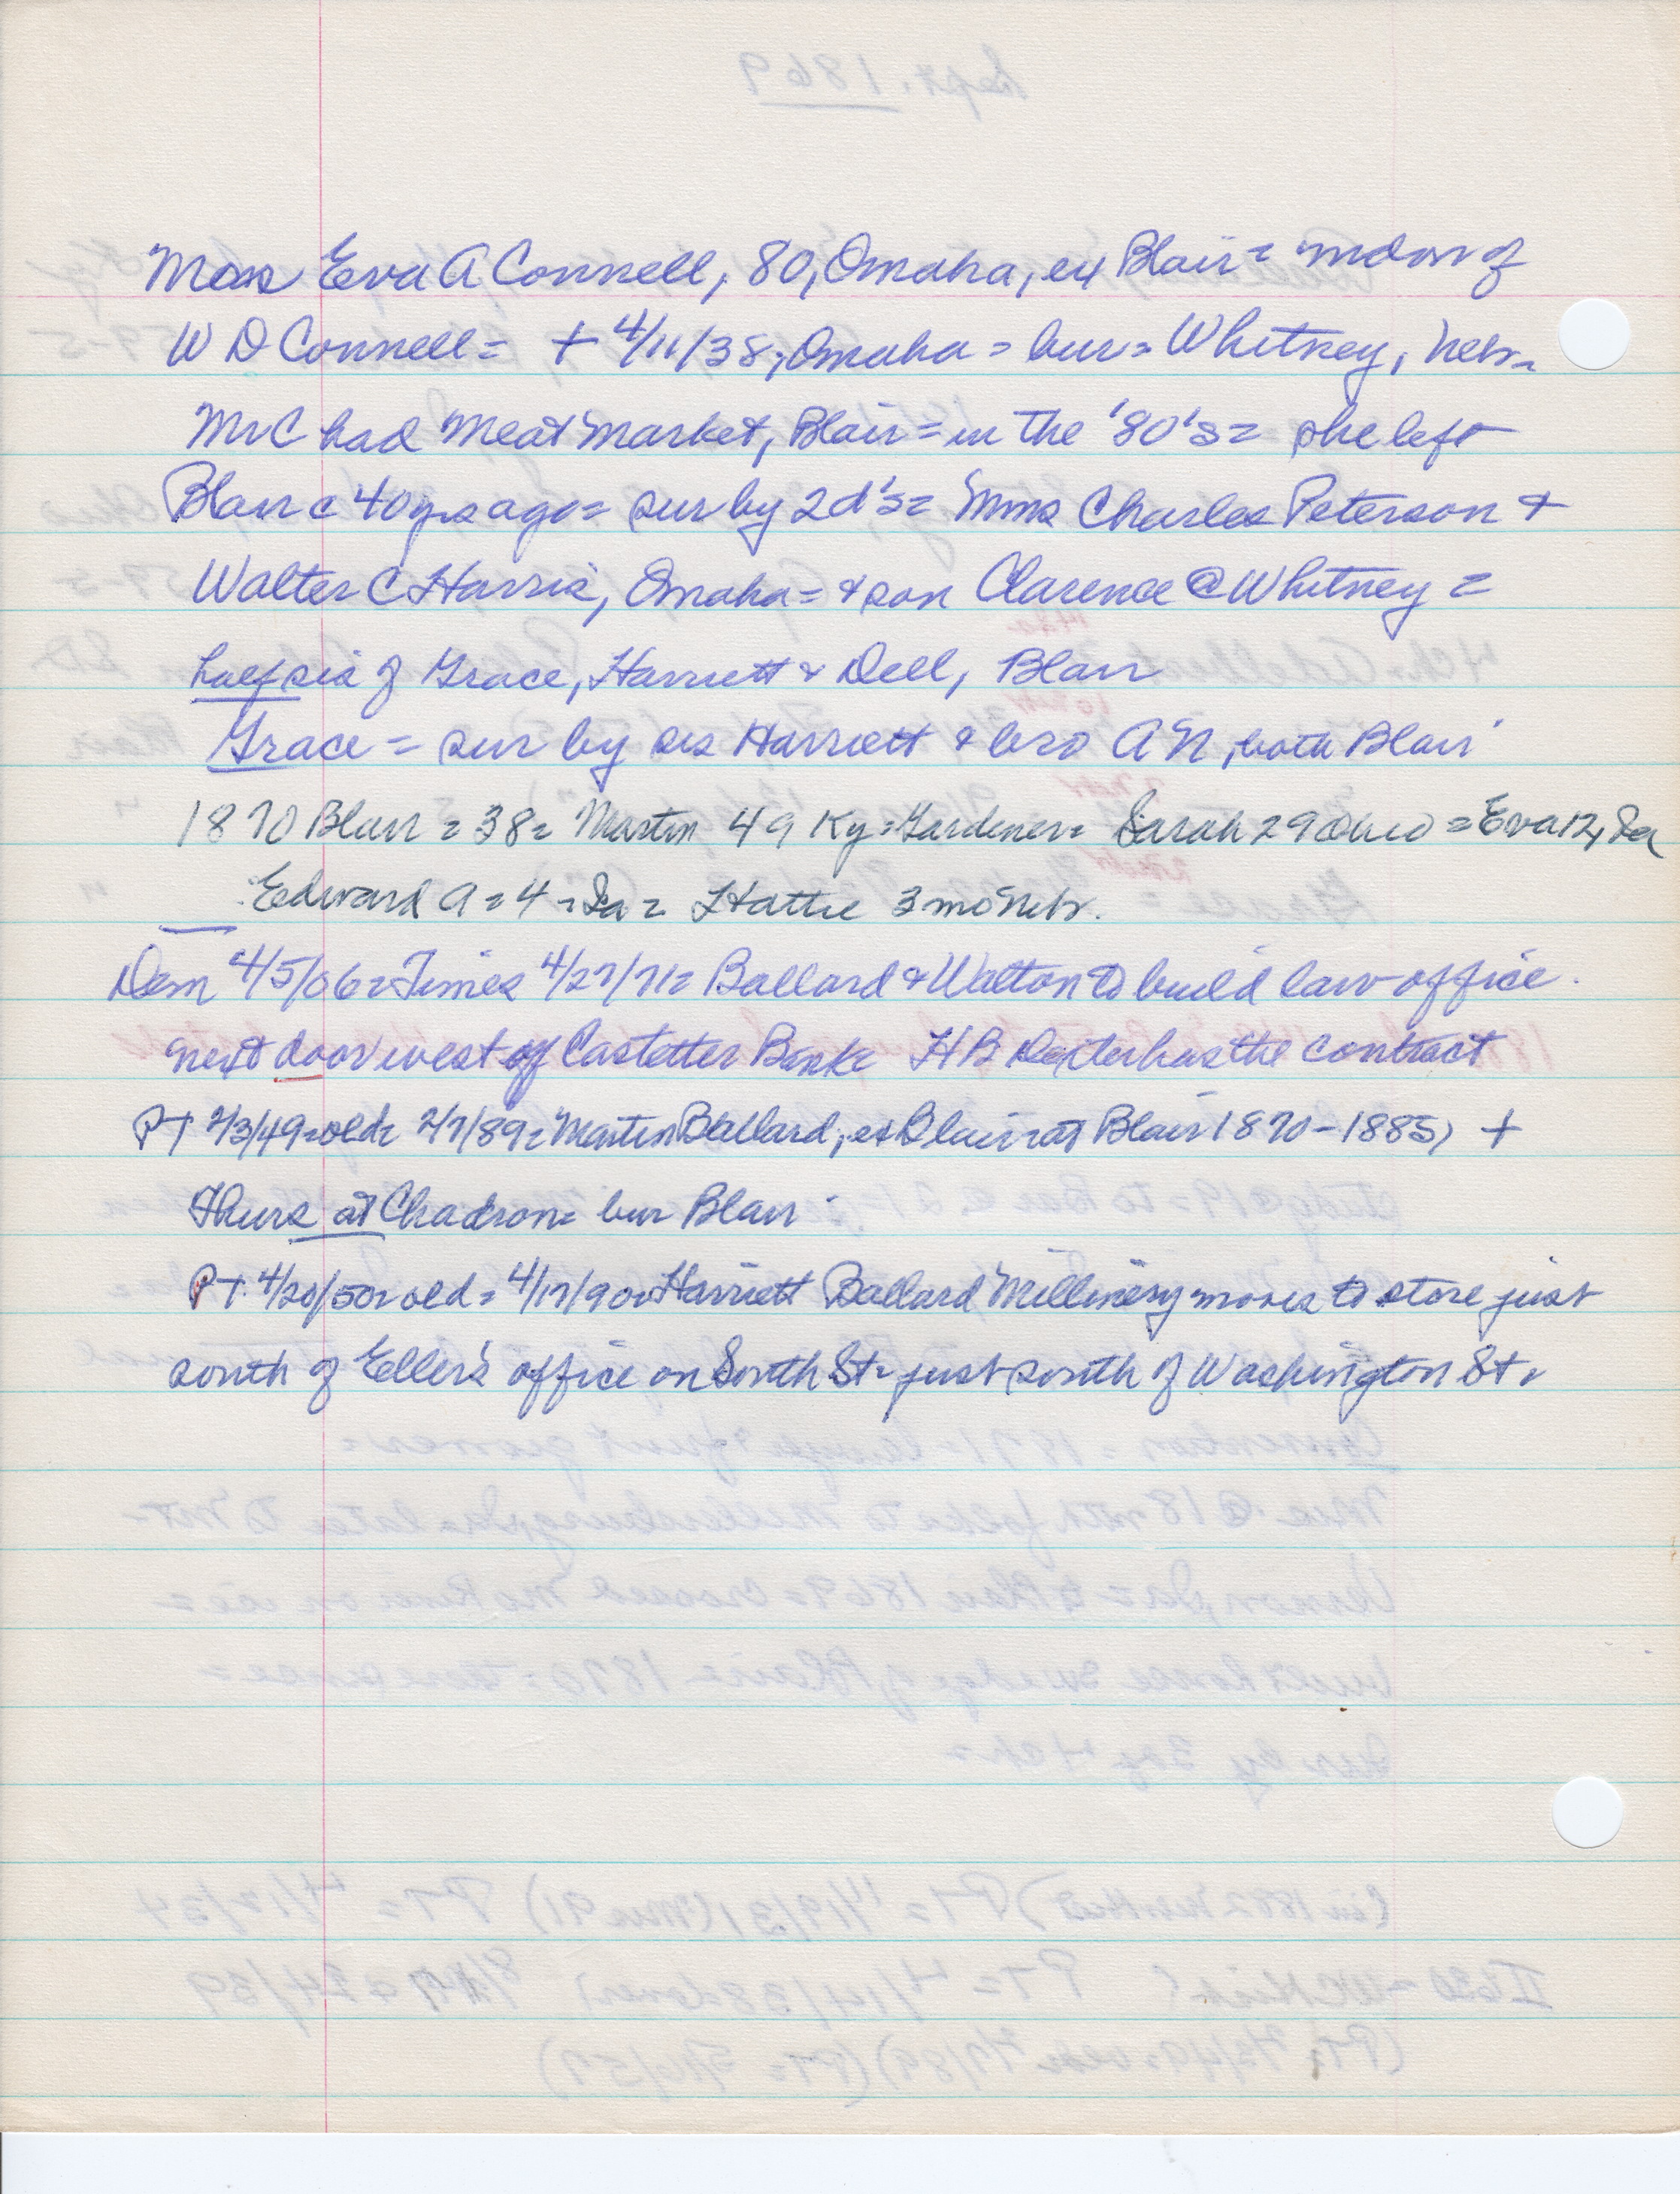 Mrs Eva A Connell, 80, Omaha, ex Blair = widow of
W D Connell = + 4/11/38, Omaha = bur = Whitney, Nebr.
Mr C had Meat Market, Blair = in the '80's = she left
Blair c 40 yrs ago = sur by 2 d's = Mmes Charles Peterson +
Walter C Harris, Omaha = & son Clarence @ Whitney =
half sis of Grace, Harriett & Dell, Blair
Grace = sur by sis Harriett & bro A N, both Blair
1870 Blair = 38 = Martin 49 Ky = Gardener = Sarah 29 Ohio = Eva 12, Ia
Edward A = 4 = Ia = Hattie 3 mo Nebr.
Dem 4/5/06 = Times 4/27/71 = Ballard & Walton to build law office
next door west of Castetter Bank HB Dexter has the contract
PT 2/3/49 = old = 2/7/89 = Martin Ballard, ex Blair at Blair 1870-1885) +
Thurs at Chadron = bur Blair
PT 4/20/50 = old = 4/17/90 = Harriett Ballard Millinery moves to store just
south of Eller's office on South St = just south of Washington St.